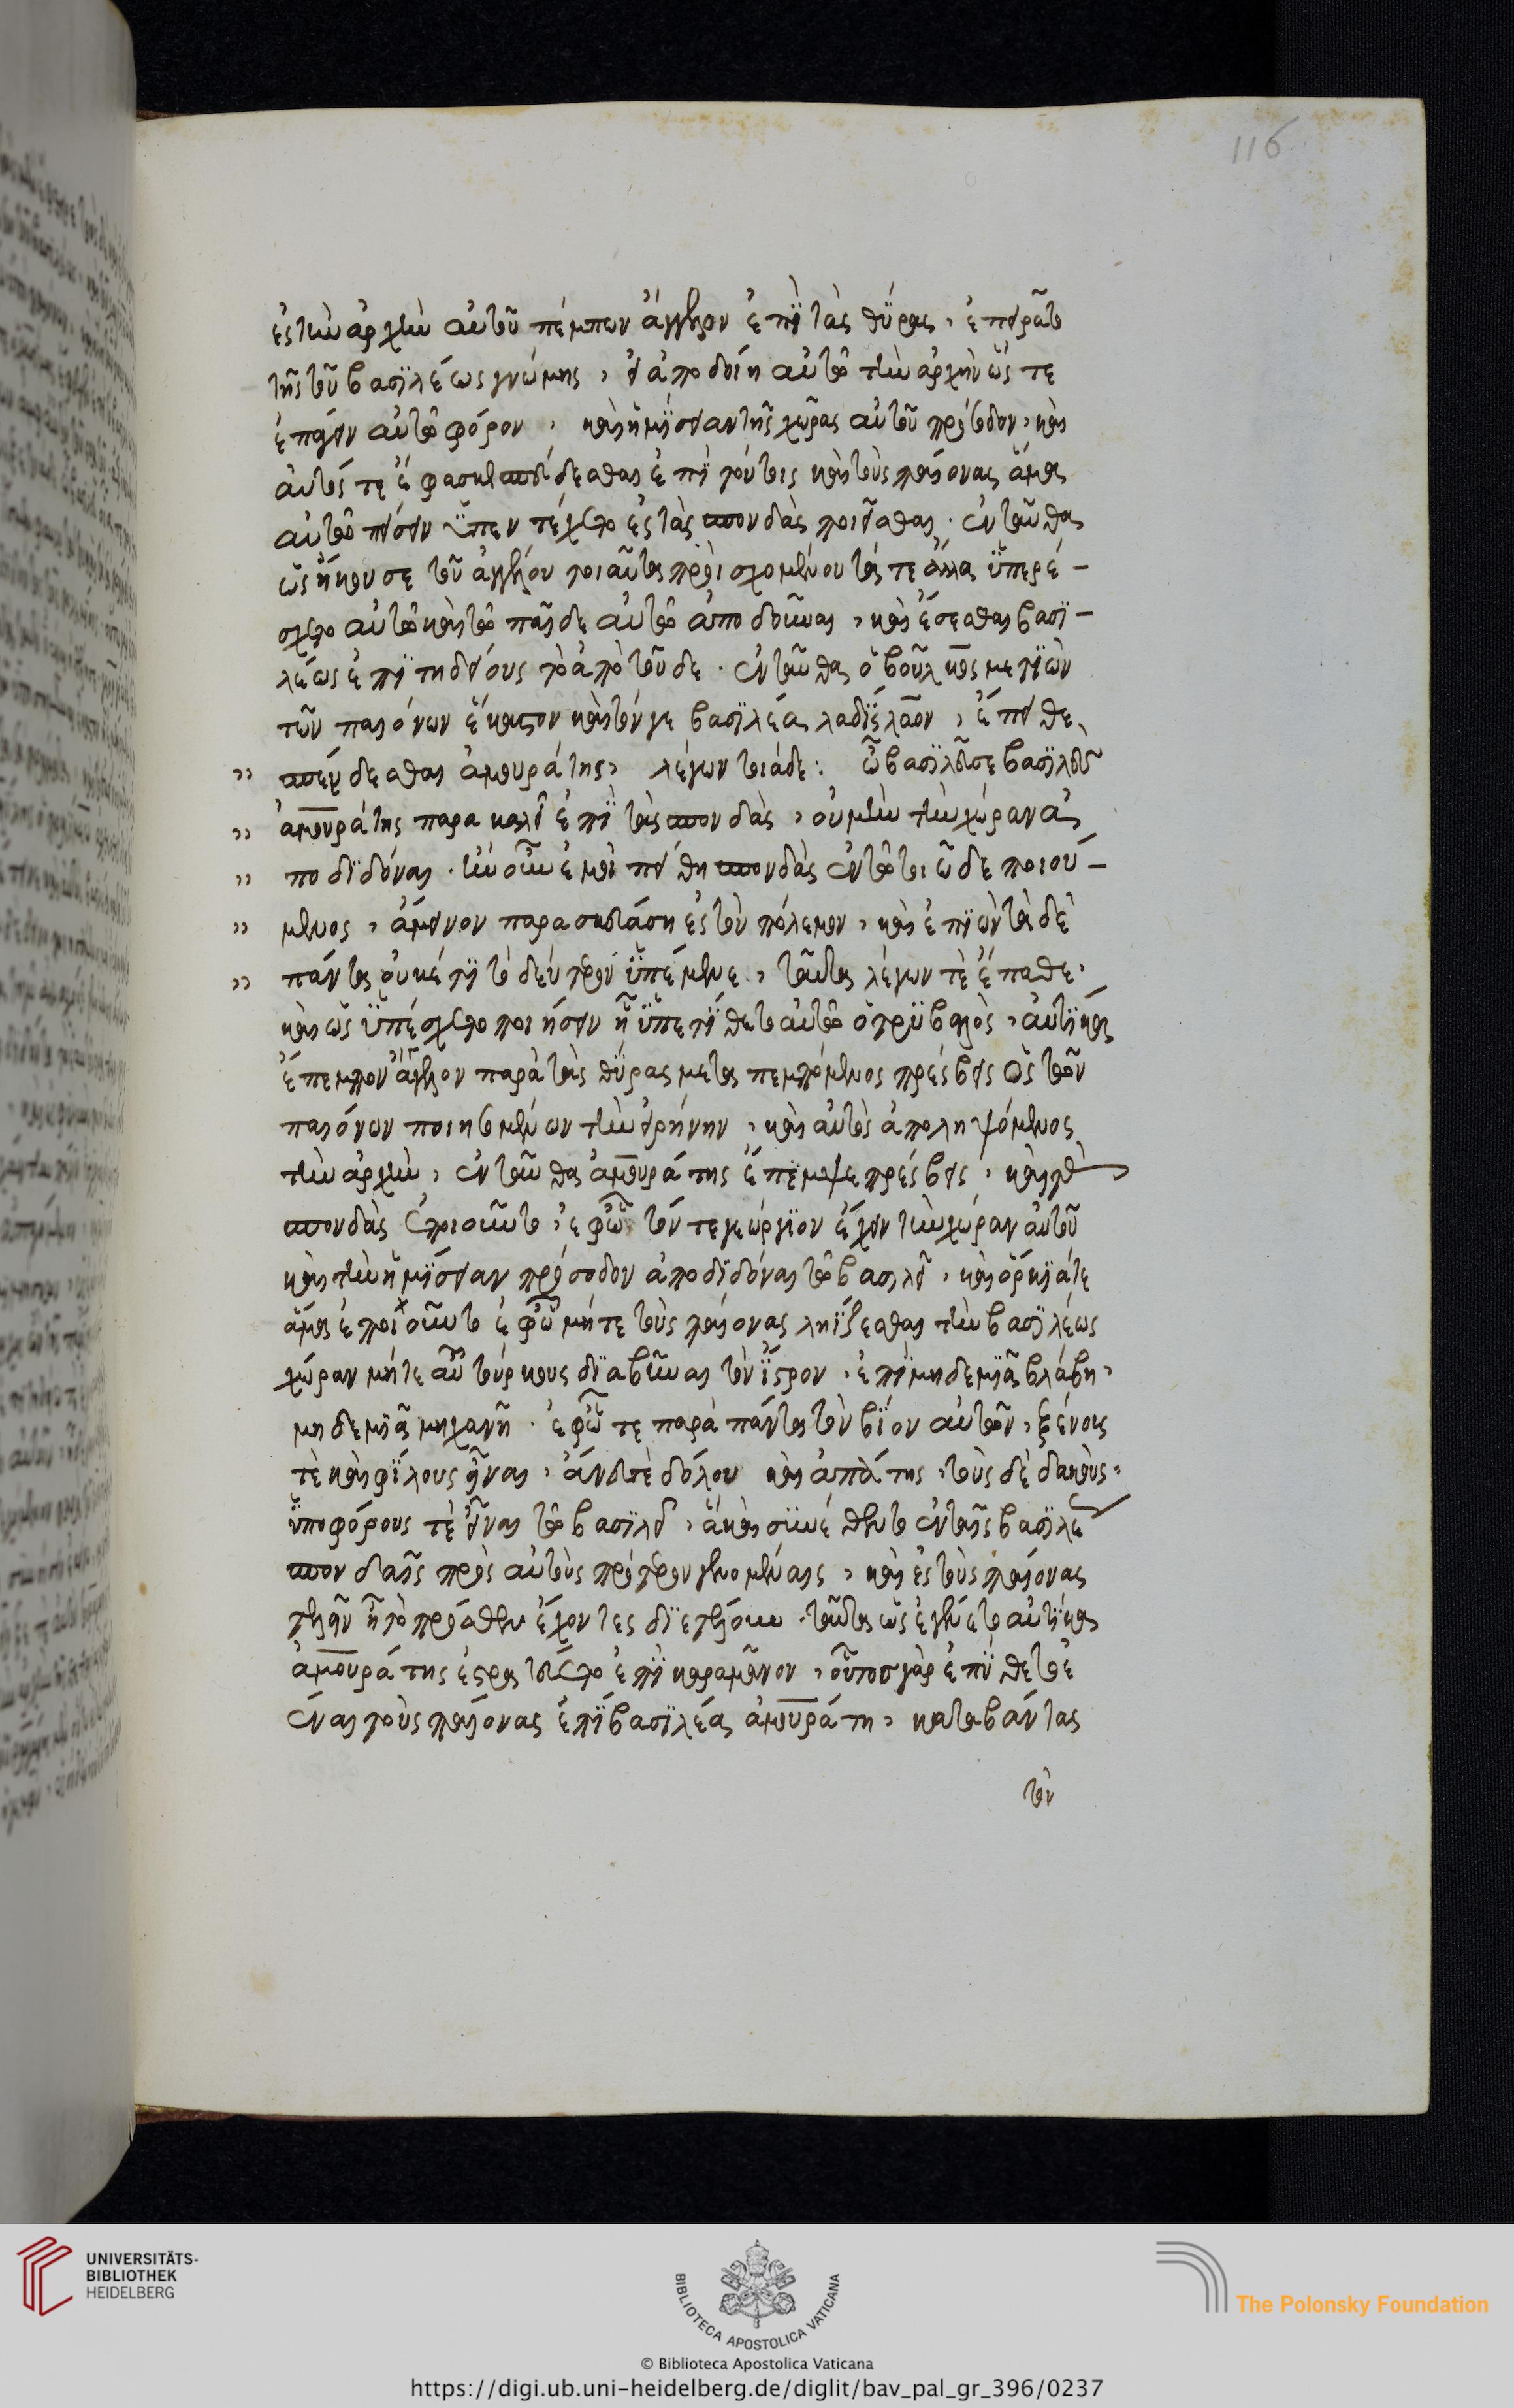 ἐς τὴν ἀρχὴν αὐτοῦ πέμπων ἄγγελον ἐπὶ τὰς θύρας, ἐπειρᾶτο
τῆς τοῦ βασιλέως γνώμης, εἰ ἀποδοίη αὐτῶ τὴν ἀρχὴν ὥς τε
ἐπάγειν αὐτῶ φόρον, καὶ ἡμίσειαν τῆς χώρας αὐτοῦ πρόσοδον, καὶ
αὐτός τε ἔφασκε σπένδεσθαι ἐπὶ τούτοις καὶ τοὺς παίονας ἅμα
αὐτῶ πείσειν ὑπεδέχετο ἐς τὰς σπονδὰς ποιεῖσθαι. ἐνταῦθα
ὡς ἤκουσε τοῦ ἀγγέλου τοιαῦτα προϊσχομένου τά τε ἄλλα ὑπερέ-
σχετο αὐτῶ καὶ τὼ παῖδε αὐτῶ ἀποδοῦναι, καὶ ἔσεσθαι βασι-
λέως ἐπιτηδείους τὸ ἀπὸ τοῦδε. ἐνταῦθα ὁ βοῦλκος μετιὼν
τῶν παιόνων ἕκαστον καὶ τόν γε βασιλέα λαδίσλαον, ἔπειθε
σπένδεσθαι ἀμουράτης, λέγων τοιάδε: ὦ βασιλεῦ σὲ βασιλεὺς
ἀμουράτης παρακαλεῖ ἐπὶ τὰς σπονδὰς, οὐ μὴν τὴν χώραν ἀ
ποδιδόναι. ἢν οὖν ἐμοὶ πείθη σπονδὰς ἐν τῶ τοιῶδε ποιού-
μενος, ἄμεινον παρασκευάση ἐς τὸν πόλεμον, καὶ ἐπιὼν τὰ δὲ
πάντα οὐκέτι τὸ δεύτερον ὑπέμεινε, ταῦτα λέγων τὲ ἔπειθε,
καὶ ὡς ὑπέσχετο ποιήσειν ἧ ὑπετίθετο αὐτῶ ὁ τριβαλὸς, αὐτίκα
ἔπεμπον ἄγγελον παρὰ τὰς θύρας μετα πεμπόμενος πρέσβεις ὡς τῶν
παιόνων ποιησομένων τὴν εἰρήνην, καὶ αὐτὸς ἀποληψόμενος
τὴν ἀρχὴν, ἐνταῦθα ἀμουράτης ἔπεμψε πρέσβεις, καὶ τὰς
σπονδὰς ἐποιοῦντο, ἐφ' ὧ τόν τε γεώργιον ἔχειν τὴν χώραν αὐτοῦ
καὶ τὴν ἡμίσειαν πρόσοδον ἀποδιδόναι τῶ βασιλεῖ, καὶ ὅρκιά τε
ἅμα ἐποιοῦντο ἐφ' ὧ μήτε τοὺς παίονας ληΐζεσθαι τὴν βασιλέως
χώραν μήτε αὖ τούρκους διαβῆναι τὸν ἴστρον, ἐπὶ μηδεμιᾶ βλάβη,
μηδεμιᾶ μηχανῆ. ἐφ' ὧ τε παρὰ πάντα τὸν βίον αὐτῶν, ξένους
τὲ καὶ φίλους εἶναι, ἄνευ τὲ δόλου καὶ ἀπάτης, τοὺς δὲ δακοὺς,
ὑποφόρους τὲ εἶναι τῶ βασιλεῖ, ἃ καὶ συνέθεντο ἐν ταῖς βασιλέως
σπονδαῖς πρὸς αὐτοὺς πρότερον γενομέναις, καὶ ἐς τοὺς παίονας
τελεῖν ἧ τὸ πρόσθεν ἔχοντες διετέλουν. ταῦτα ὡς ἐγένετο αὐτίκα
ἀμουράτης ἐστρατεύετο ἐπὶ καραμᾶνον, οὗτος γὰρ ἐπύθετο ἐ
ἰέναι τοὺς παίονας ἐπὶ βασιλέα ἀμουράτη, καταβάντας
τὸν
116
UNIVERSITÄTS-
BIBLIOTHEK
HEIDELBERG
BIBLIOTECA APOSTOLICA VATICANA
The Polonsky Foundation
© Biblioteca Apostolica Vaticana
https://digi.ub.uni-heidelberg.de/diglit/bav_pal_gr_396/0237